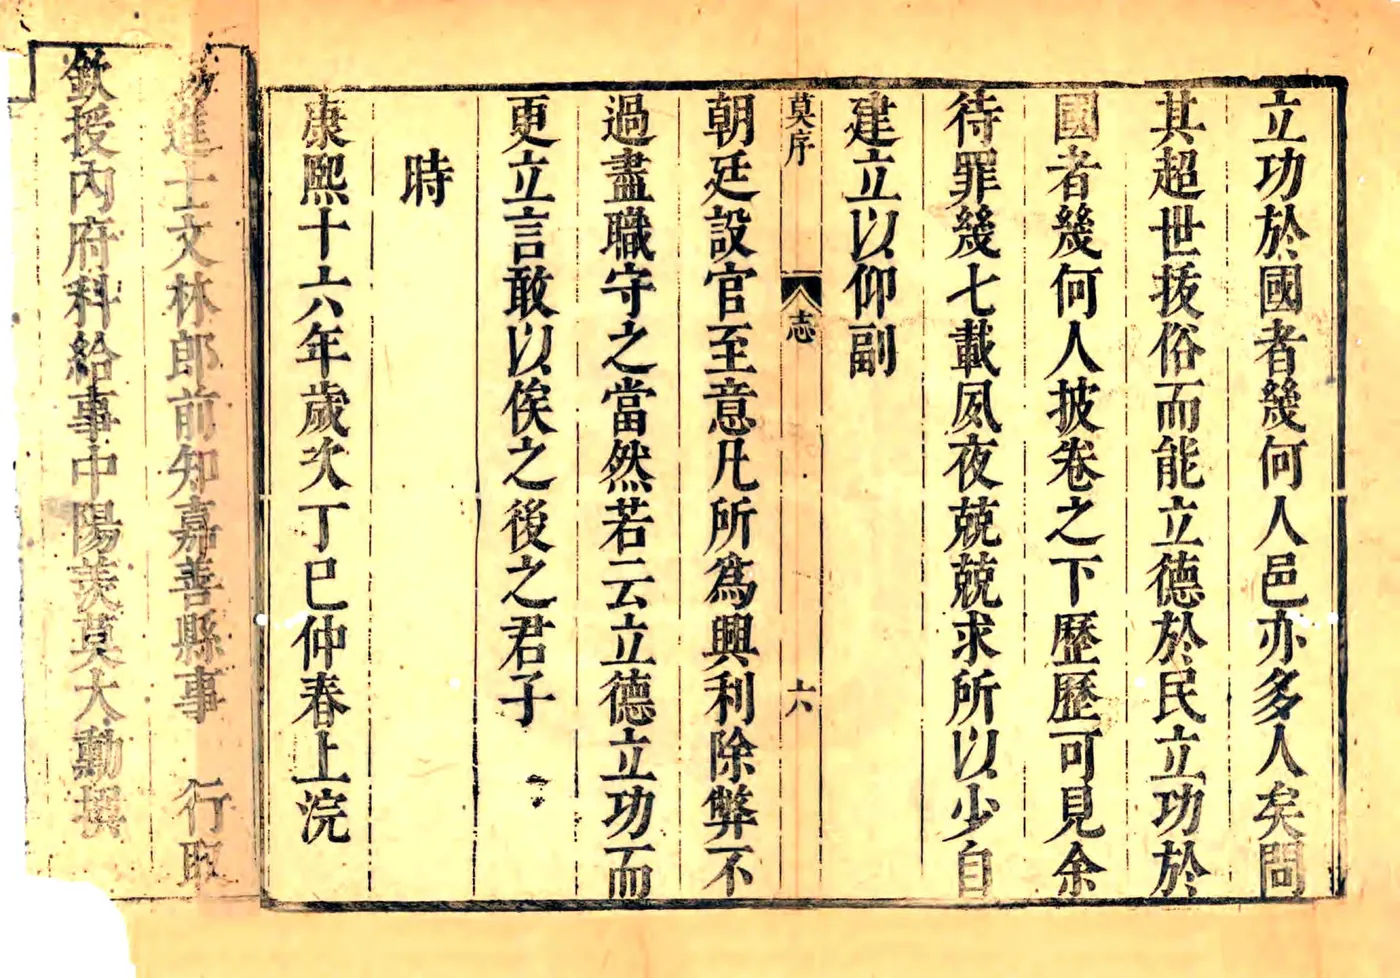 立功於國者幾何人邑亦多人矣問
其超世抜俗而能立德於民立功於
國者幾何人披卷之下歷歷可見余
待罪幾七載夙夜兢兢求所以少自
建立以仰副
莫序 志 六
朝廷設官至意凡所爲興利除弊不
過盡職守之當然若云立德立功而
更立言敢以俟之後之君子
時
康熙十六年歲次丁巳仲春上浣
進士文林郎前知嘉善縣事 行取
欽授內府科給事中陽羨莫大勳撰